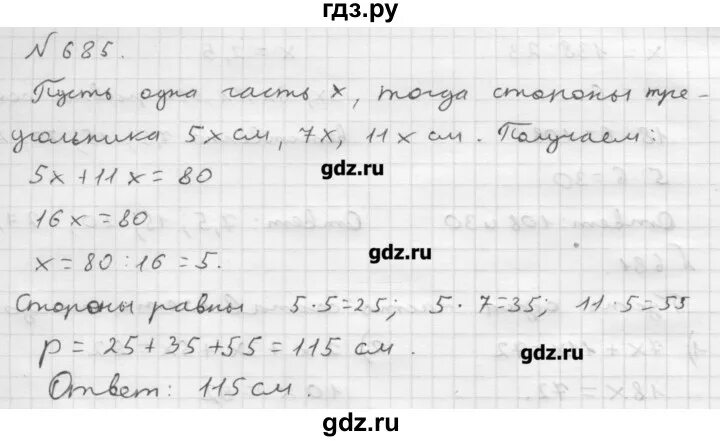 гдз.ру
N 685.
Пусть одна часть x, тогда стороны тре-
угольника 5x см, 7x, 11x см. Получаем:
5x + 11x = 80
gdz.ru
16x = 80
gdz.ru
x = 80 : 16 = 5.
Стороны равны 5·5=25; 5·7=35; 11·5=55
p = 25 + 35 + 55 = 115 см.
gdz.ru
Ответ: 115 см.
gdz.ru